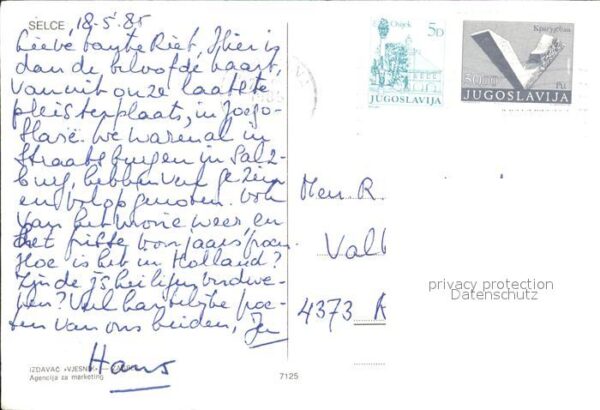 SELCE, 18-5-85
Lieve tante Riet, Hier is
dan de beloofde kaart,
vanuit onze laatste
pleisterplaats, in Joego-
slavië. We waren al in
Straatsburg en in Salz-
burg, hebben veel gezien
en volop genoten. Ook
van het mooie weer, en
het frisse voorjaarsgroen.
Hoe is het in Holland?
Zijn de ijsheiligen
Veel hartelijke groe-
ten van ons beiden,
Hans
IZDAVAČ »VJESNIK« — ZAGREB
Agencija za marketing
7125
Osijek
5D
JUGOSLAVIJA
5000
JUGOSLAVIJA
Mevr. R.
Valk
4373 A
privacy protection
Datenschutz